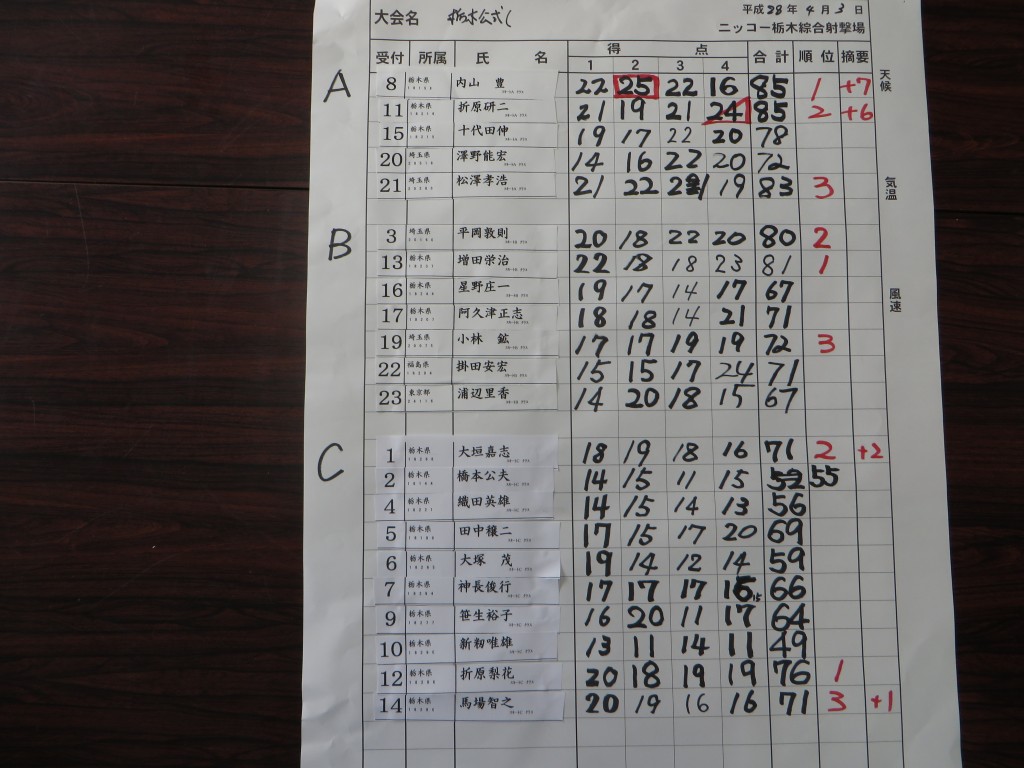 大会名 栃木公式
平成28年4月3日
ニッコー栃木綜合射撃場
受付 所属 氏 名 得 点 合計 順位 摘要
1 2 3 4
天候
気温
風速
A
8 栃木県 内山 豊 22 25 22 16 85 1 +7
11 栃木県 折原研二 21 19 21 24 85 2 +6
15 栃木県 十代田伸 19 17 22 20 78
20 埼玉県 澤野能宏 14 16 22 20 72
21 埼玉県 松澤孝浩 21 22 21 19 83 3
B
3 埼玉県 平岡敦則 20 18 22 20 80 2
13 栃木県 増田栄治 22 18 18 23 81 1
16 栃木県 星野庄一 19 17 14 17 67
17 栃木県 阿久津正志 18 18 14 21 71
19 埼玉県 小林 鉱 17 17 19 19 72 3
22 福島県 掛田安宏 15 15 17 24 71
23 東京都 浦辺里香 14 20 18 15 67
C
1 栃木県 大垣嘉志 18 19 18 16 71 2 +2
2 栃木県 橋本公夫 14 15 11 15 55
4 栃木県 織田英雄 14 15 14 13 56
5 栃木県 田中穣二 17 15 17 20 69
6 栃木県 大塚 茂 19 14 12 14 59
7 栃木県 神長俊行 17 17 17 15 15 66
9 栃木県 笹生裕子 16 20 11 17 64
10 栃木県 新籾唯雄 13 11 14 11 49
12 栃木県 折原梨花 20 18 19 19 76 1
14 栃木県 馬場智之 20 19 16 16 71 3 +1